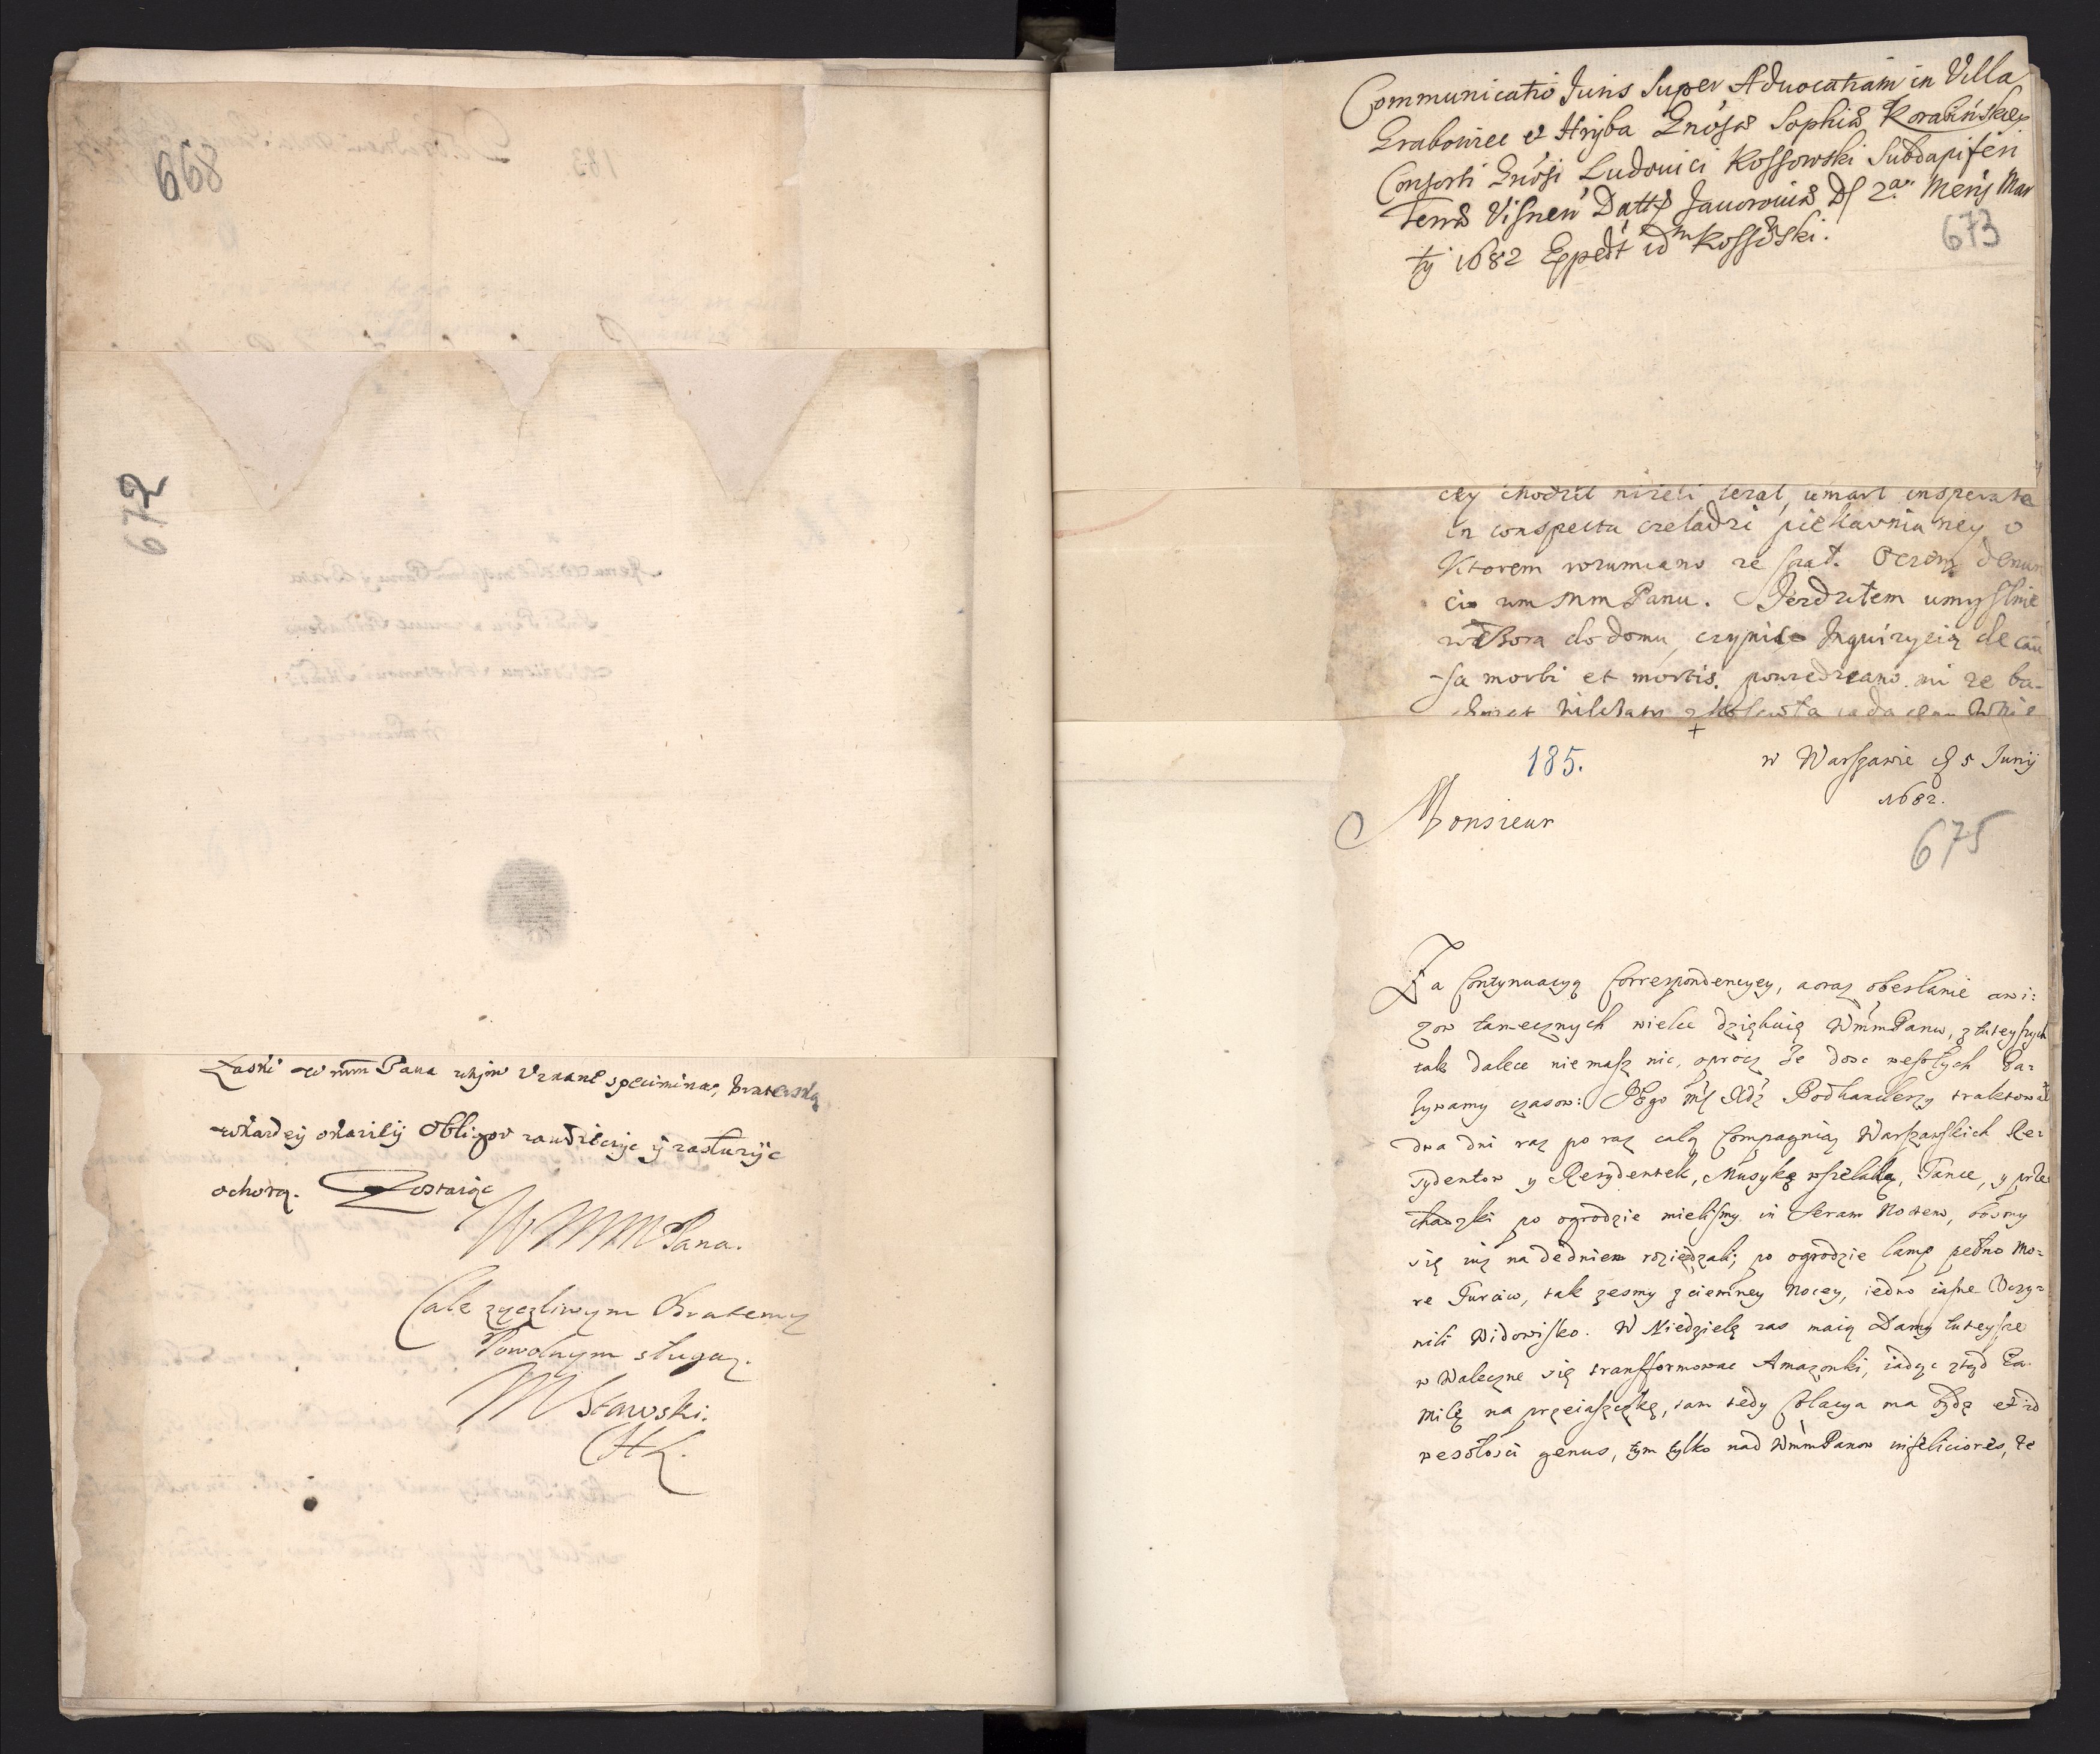 668
672
Łaski WmmPana uznane specimina, braterską
w każdey okaziiy Obligow zawdzięczyc ÿ zasłuzÿc
ochotą. Zostaiąc
WMMPana.
Cale zyczliwym Bratem y
Powolnym sługą.
M Stawski.
Communicatio Juris super Advocatiam in Villa
Grabowiec et Hryba Gnosae Sophiae Korabinskiey
Consorti Gnosi Ludovici Kossowski Subdapiferi
Terrae Visnen Datt Javoroviae D 2a Mensis Mar
tÿ 1682 Expedt id Kossowski.
673
cey chodził nizeli lezał, umarł insperate
in conspectu czeladzi piekarnianey o
Ktorem rozumiano ze spał. Oczem denun
cio WmMmPanu. Jezdziłem umyslnie
do domu, czynić Inquizycią de cau
-sa morbi et mortis. powiedziano mi ze ba-
185.
w Warszawie d 5 Junij
1682.
Monsieur
675
Za Contynuacyą Correspondencyey, a oraz obesłanie awi:
zow tamecznych wielce dziękuię WmmPanu, z tuteyszych
tak dalece niemasz nic, oprocz że dosc wesołych Za=
zywamy czasow: JEgo Mć Xdz Podkanclerzy traktował
dwa dni raz po raz całą Compagnią Warszawskich Re=
zydentow y Rezydentek, Muzyką wszelaką, Tance, y prze
chadzki po ogrodzie mielismy in seram Noctem, bosmy
się iuz nadedniem rozieżdzali; po ogrodzie lamp pełno Mo=
re Turcico, tak zesmy z ciemney Nocey, iedno iasne Uczy=
nili Widowisko. W Niedzielę zas maią Damy tuteysze
w Waleczne się transformowac Amazonki, iadąc ztąd Za
Milę na przeiaszczkę, tam tedy Colacya ma bydz et id
wesołosci genus, tym tylko nad WmmPanow infeliciores, że